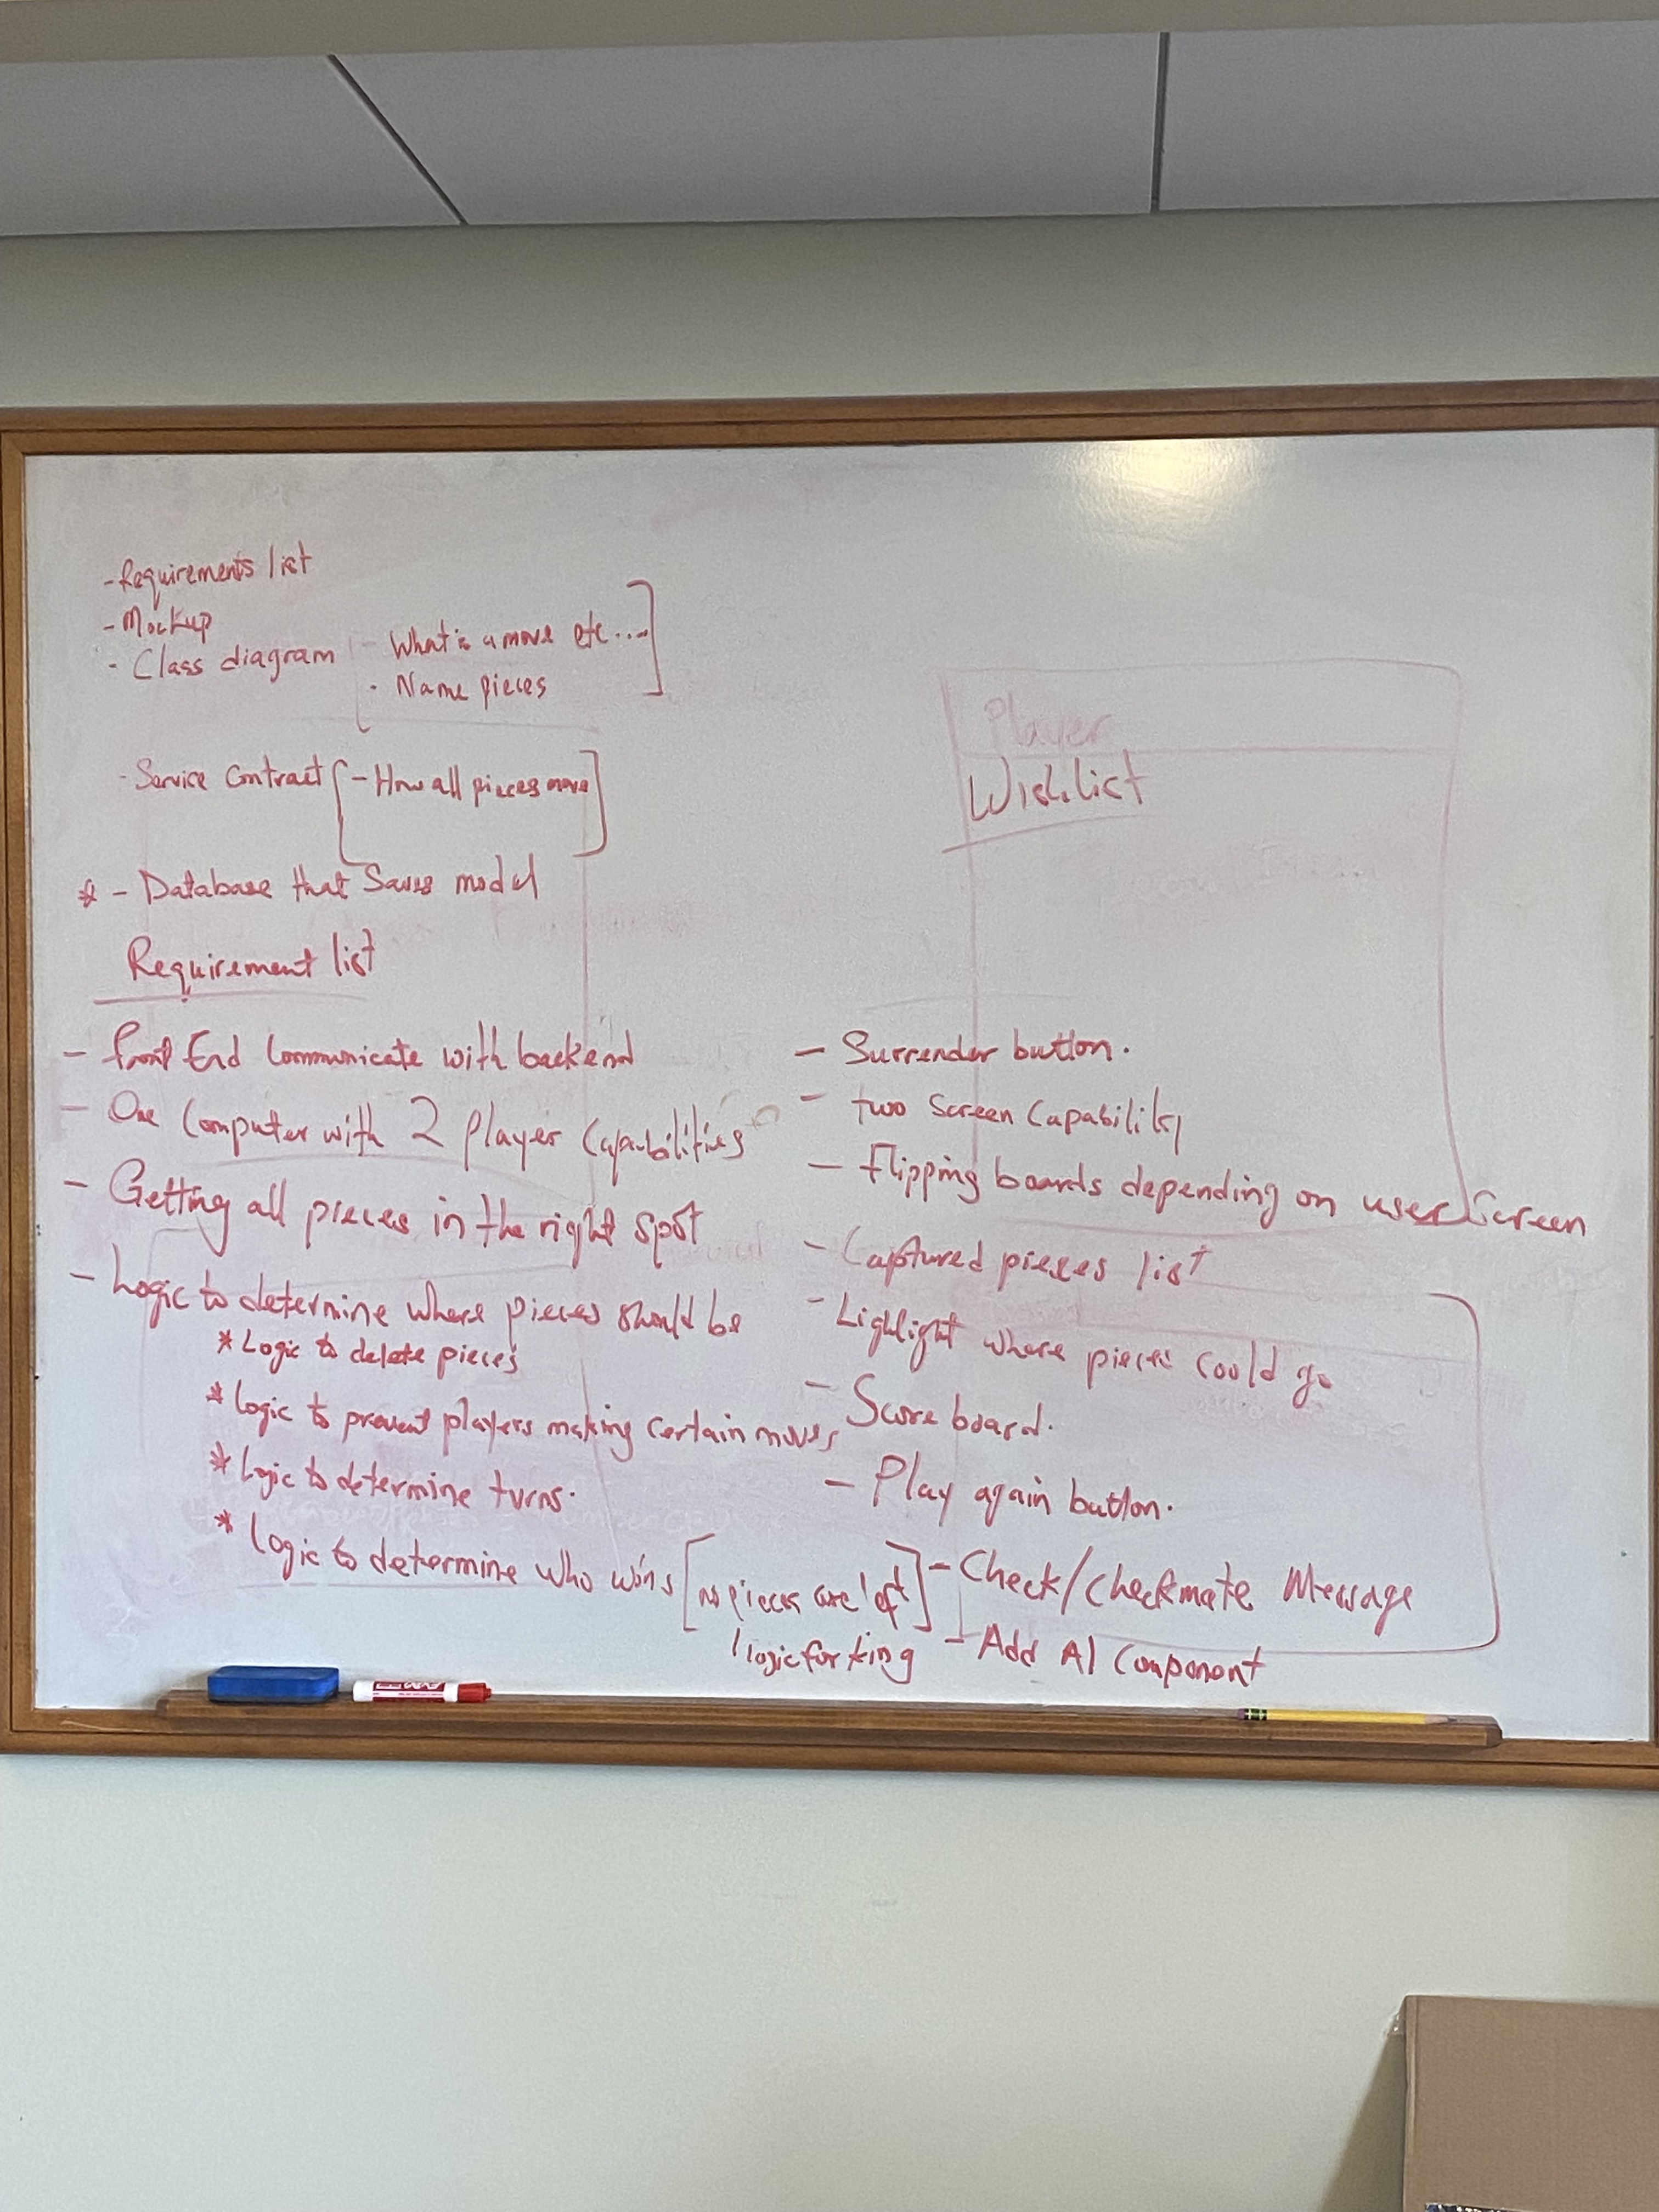 - Requirements list
- Mockup
- Class diagram - What is a move etc....
- Name pieces
- Service Contract [ - How all pieces move ]
* - Database that Saves model
Requirement list
- Front End Communicate with backend
- One Computer with 2 Player Capabilities
- Getting all pieces in the right spot
- Logic to determine where pieces should be
* Logic to delete pieces
* Logic to prevent players making certain moves
* Logic to determine turns.
* Logic to determine who wins [no pieces are left]
logic for king
Player
Wishlist
- Surrender button.
- two Screen Capability
- Flipping boards depending on user Screen
- Captured pieces list
- Lighlight where pieces could go
- Score board.
- Play again button.
- Check/Checkmate Message
- Add AI Component